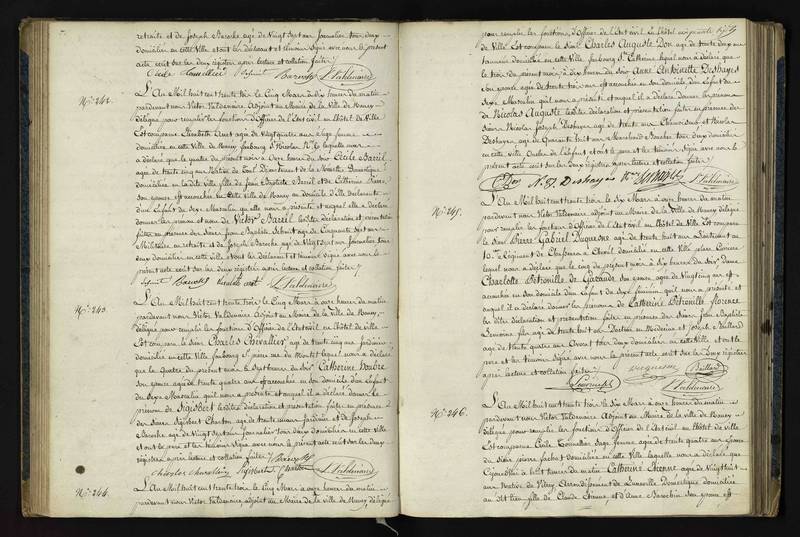 retraite et de Joseph Baroche agé de Vingt sept ans journalier tous deux
domiciliés en cette Ville et ont les déclarant et témoins signé avec nous le présent
acte écrit sur les deux régistres après lecture et collation faite
L. Valdenaire
No. 242.
L'An Mil huit cent trente trois le Cinq Mars à dix heures du matin
pardevant nous Victor Valdenaire Adjoint au Maire de la Ville de Nancy
délégué pour remplir les fonctions d'Officier de l'Etat civil en l'hôtel de Ville
Est comparue Elisabeth agée de Vingt quatre ans Elève femme
domiciliée en cette Ville de Nancy faubourg St Nicolas No. laquelle nous
a déclaré que le quatre du présent mois à Onze heures du soir Cécile Bareil
agée de trente cinq ans Native de Domestique
domiciliée en la dite Ville fille de Jean Baptiste Bareil et de Catherine
son épouse est accouchée en cette Ville de Nancy au domicile d'Elle déclarante
d'un Enfant du sexe Masculin qu'elle nous a présenté et auquel elle a déclaré
donner les prénom et nom de Victor Bareil lesdites déclaration et présentation
faites en présence des sieurs Jean Baptiste Schmit agé de Cinquante sept ans
Militaire en retraite et de Joseph Baroche agé de Vingt sept ans Journalier tous
deux domiciliés en cette ville et ont les déclarant et témoins signé avec nous le
présent acte écrit sur les deux régistres après lecture et collation faite
L. Valdenaire
No. 243.
L'An Mil huit cent trente trois le Cinq Mars à onze heures du matin
pardevant nous Victor Valdenaire Adjoint au Maire de la Ville de Nancy,
délégué pour remplir les fonctions d'Officier de l'Etat civil en l'hôtel de Ville
Est comparu le sieur Charles Chevallier agé de trente cinq ans jardinier
domicilié en cette Ville faubourg St pierre rue du Montet lequel nous a déclaré
que le Quatre du présent mois à Sept heures du soir Catherine
son épouse agée de trente quatre ans est accouchée en son domicile d'un Enfant
du Sexe Masculin qu'il nous a présenté et auquel il a déclaré donner le
prénom de Sigisbert lesdites déclaration et présentation faites en présence
des sieurs Sigisbert Charton agé de trente un ans Jardinier et de Joseph
Baroche agé de Vingt sept ans journalier tous deux domiciliés en cette Ville
et ont le père et les témoins signé avec nous le présent acte écrit sur les deux
régistres après lecture et collation faite
L. Valdenaire
No. 244.
L'An Mil huit cent trente trois le Cinq Mars à onze heures du matin
pardevant nous Victor Valdenaire adjoint au Maire de la Ville de Nancy, délégué
pour remplir les fonctions d'Officier de l'Etat civil en l'hôtel
de Ville Est comparu le Sieur Charles Auguste Don agé de trente deux ans
domicilié en cette Ville, faubourg Ste Catherine lequel nous a déclaré que
le trois du présent mois, à dix heures du soir Anne Antoinette Deshayes
son épouse agée de trente trois ans est accouchée en son domicile d'un Enfant du
Sexe Masculin qu'il nous a présenté et auquel il a déclaré donner les prénoms
de Nicolas Auguste lesdites déclaration et présentation faites en présence des
Sieurs Nicolas Joseph Deshayes agé de trente ans et Nicolas
Deshayes, agé de Quarante huit ans Marchand Boucher tous deux domiciliés
en cette ville, Oncles de l'enfant et ont le père et les témoins Signé avec nous le
présent acte écrit sur les deux régistres après lecture et collation faite
Don N. J. Deshayes L. Valdenaire
No. 245.
L'An Mil huit cent trente trois le Six Mars à onze heures du matin
pardevant nous Victor Valdenaire adjoint au Maire de la Ville de Nancy délégué
pour remplir les fonctions d'officier de l'Etat civil en l'hôtel de Ville Est comparu
le Sieur Pierre Gabriel Duquesne agé de trente huit ans Lieutenant au
10me Régiment de Chasseurs à Cheval domicilié en cette Ville place Carrière
lequel nous a déclaré que le cinq du présent mois à Six heures du soir Dame
Charlotte Pétronille de Garaudé son épouse agée de Vingt cinq ans est
accouchée en son domicile d'un Enfant du Sexe féminin qu'il nous a présenté et
auquel il a déclaré donner les prénoms de Catherine Pétronille florence
les dites déclaration et présentation faites en présence des Sieurs Jean Baptiste
Simonin fils agé de trente huit ans Docteur en Médecine et Joseph Baillard
agé de trente quatre ans Avoué tous deux domiciliés en cette Ville et ont le
père et les témoins Signé avec nous le présent acte écrit sur les deux régistres
après lecture et collation faite Duquesne Baillard
L. Valdenaire
No. 246.
L'An Mil huit cent trente trois le Six Mars à onze heures du matin
pardevant nous Victor Valdenaire Adjoint au Maire de la Ville de Nancy
délégué pour remplir les fonctions d'officier de l'Etat civil en l'hôtel de ville
Est comparue Cécile Sage femme agée de trente quatre ans épouse
du Sieur pierre domiciliée en cette Ville laquelle nous a déclaré que
Cejourd'hui à huit heures du matin Catherine Etienne agée de Vingt huit
ans Native de Vitrey Arrondissement de Lunéville Domestique domiciliée
au dit lieu fille de Claude Etienne, et d'Anne son épouse est